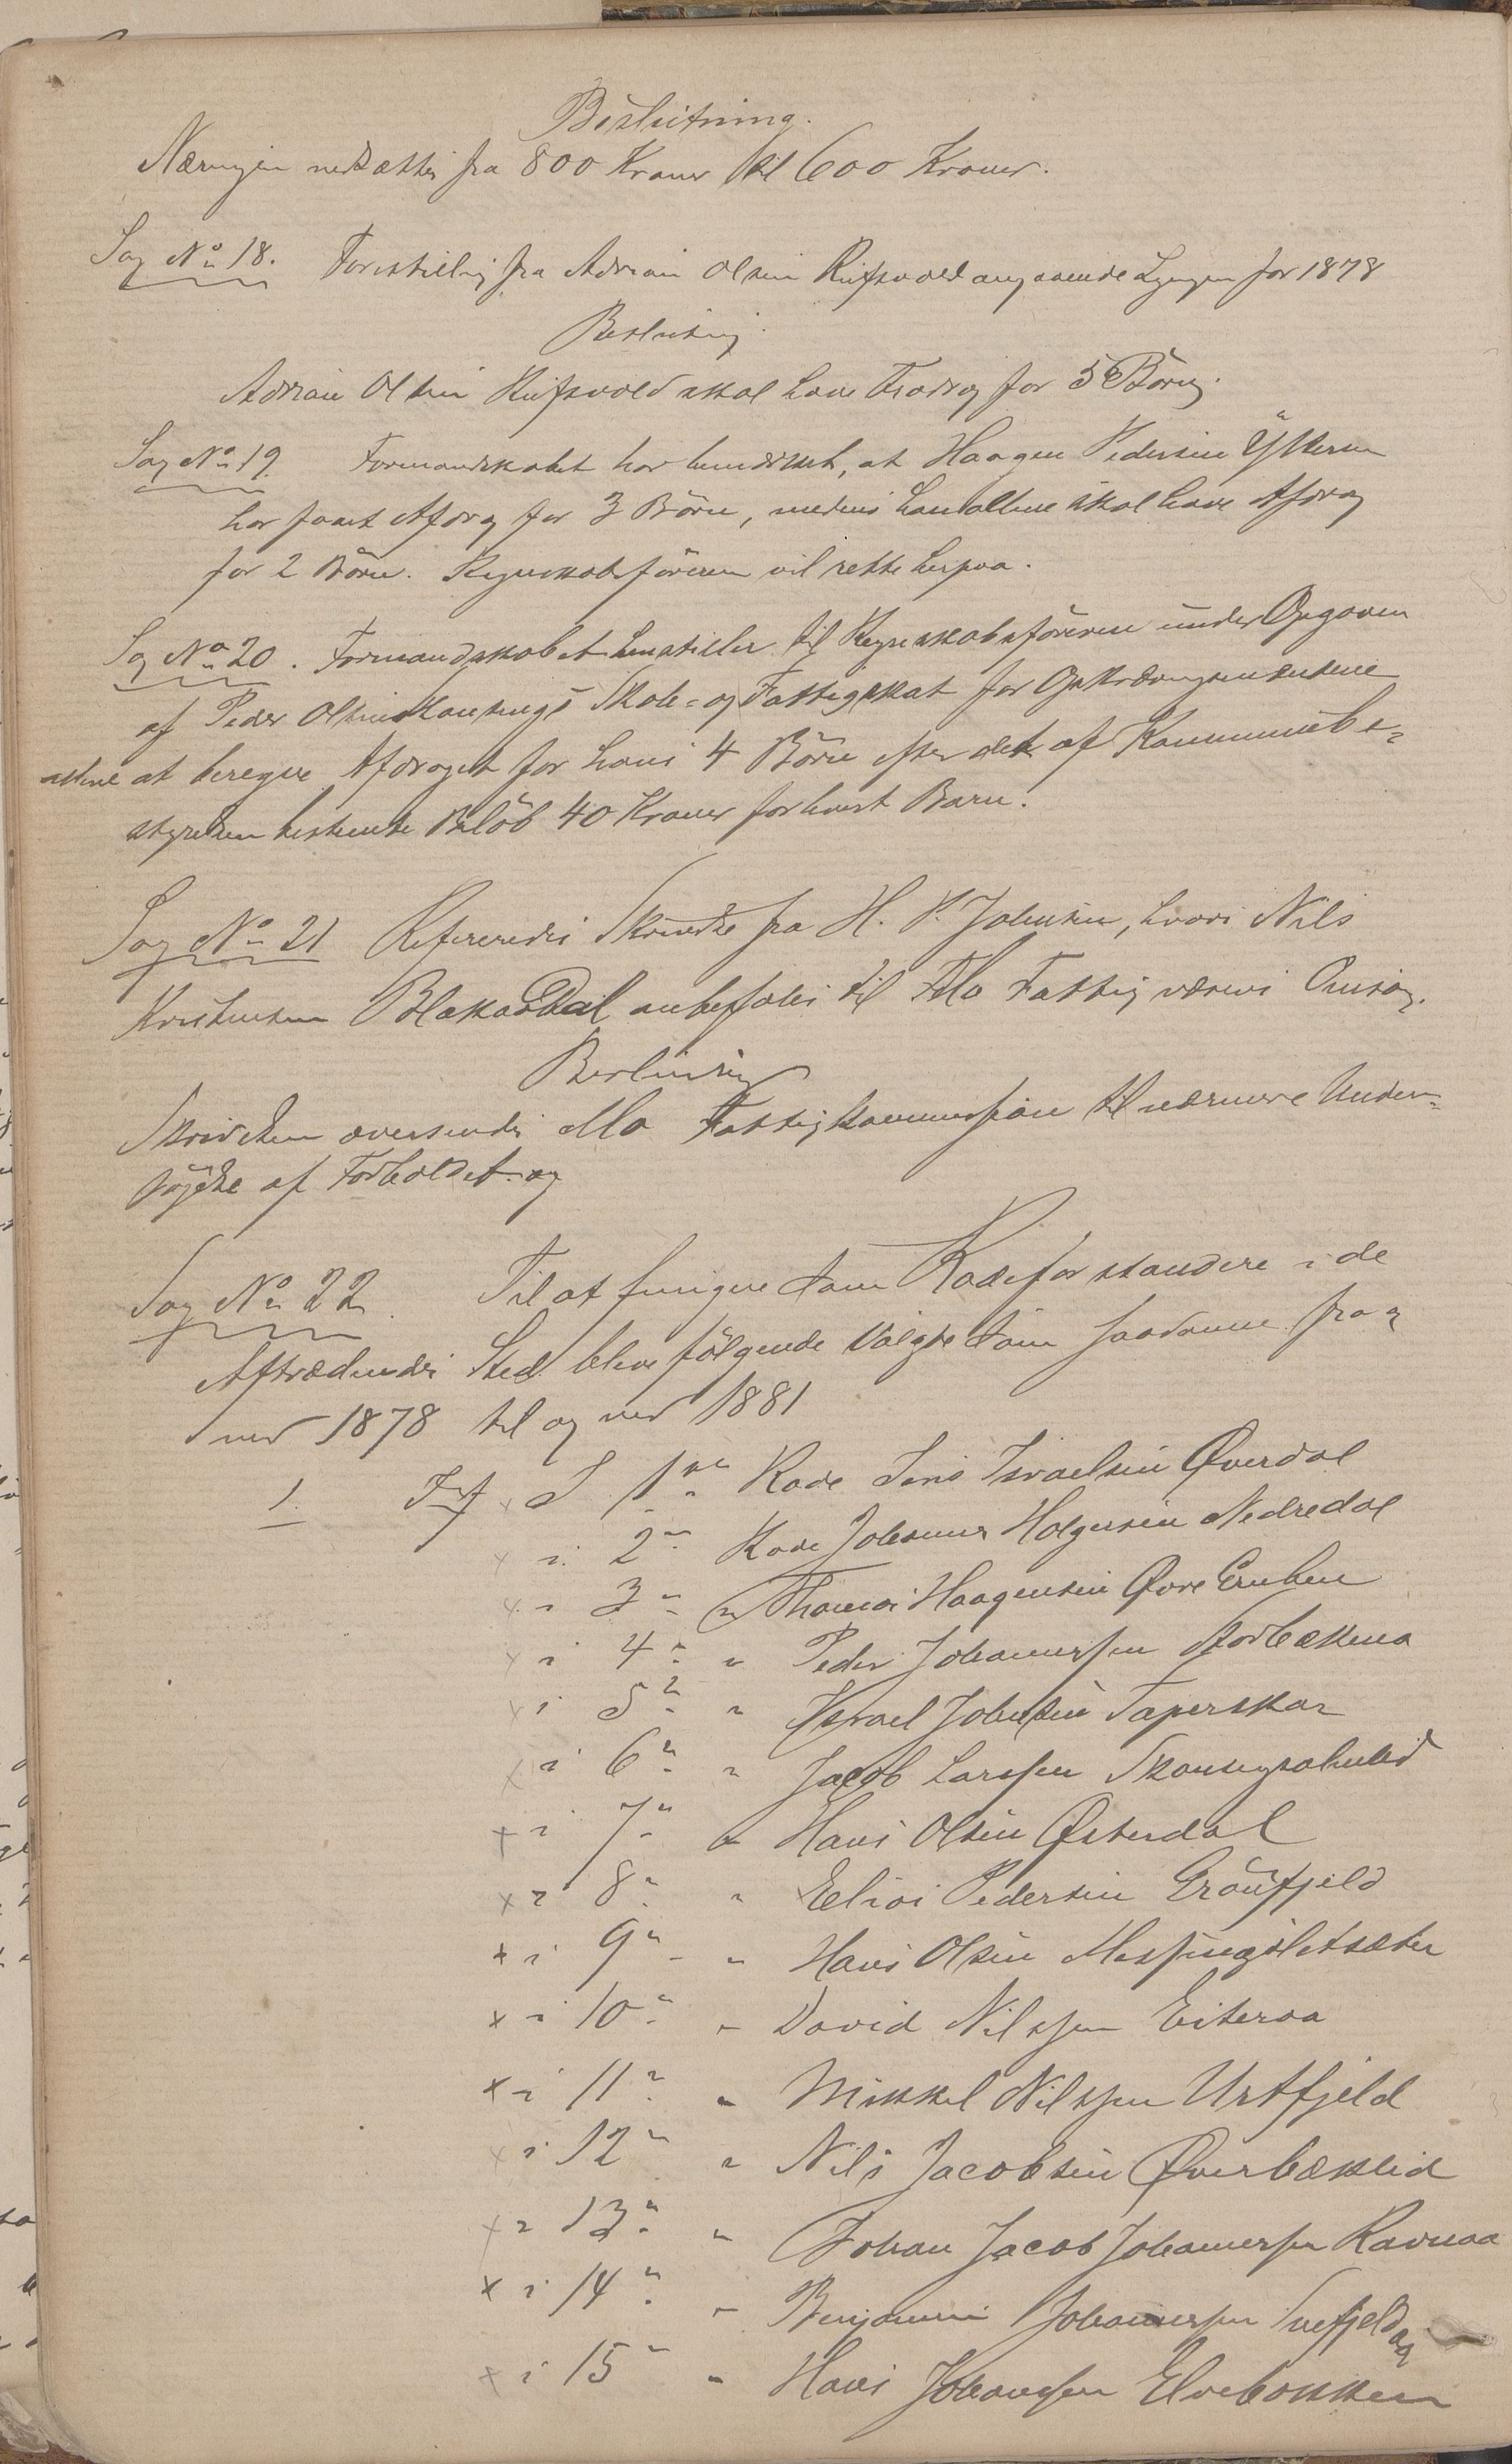 Beslutning.
Næringen nedsættes fra 800 Kroner til 600 Kroner.
Sag No 18. Forestilling fra Adrian Olsen Rufsvold angaaende Ligningen for 1878
Beslutning.
Adrian Olsen Rufsvold skal have Fradrag for 5 Börn.
Sag No 19. Formandskabet har bemærket, at Haagen Pedersen Ytteren
har faaet Afdrag for 3 Börn, medens han alene skal have Afdrag
for 2 Börn. Regnskabsföreren vil rette herpaa.
Sag No 20. Formandskabet henstiller til Regnskabsföreren under Opgaven
af Peder Olsen Skansengs Skole- og Fattigskat for
at beregne Afdraget for hans 4 Börn efter det af Kommunebe-
styrelsen bestemte Belöb 40 Kroner for hvert Barn.
Sag No 21 Refereredes Skrivelse fra H. P. Johnsen, hvori Nils
Kristensen Blakkaadal anbefales til Mo Fattigvæsens Omsorg.
Beslutning
Skrivelsen oversendes Mo Fattigkommission til nærmere Under-
sögelse af Forholdet.
Sag No 22. Til at fungere som Rodeforstandere i de
Aftrædendes Sted bleve fölgende valgte som saadanne fra og
med 1878 til og med 1881
1. I 1ste Rode Jens Israelsen Øverdal
x i 2n Rode Johannes Holgersen Nedredal
x i 3n " Thomas Haagensen Øvre Gruben
x i 4n " Peder Johannessen Storbækmo
x i 5n " Israel Johnsen Taperskar
x i 6n " Jacob Larssen Skansengsalmlid
x i 7n " Hans Olsen Østerdal
x i 8n " Elias Pedersen Grönfjeld
x i 9n " Hans Olsen Messingsletsæter
x i 10n " David Nilssen Eiteraa
x i 11n " Mikkel Nilssen Urtfjeld
x i 12n " Nils Jacobsen Øverbæklid
x i 13n " Johan Jacob Johannessen Ravnaa
x i 14n " Benjamin Johannessen Snefjeld og
x i 15n " Hans Johanssen Elvebakken